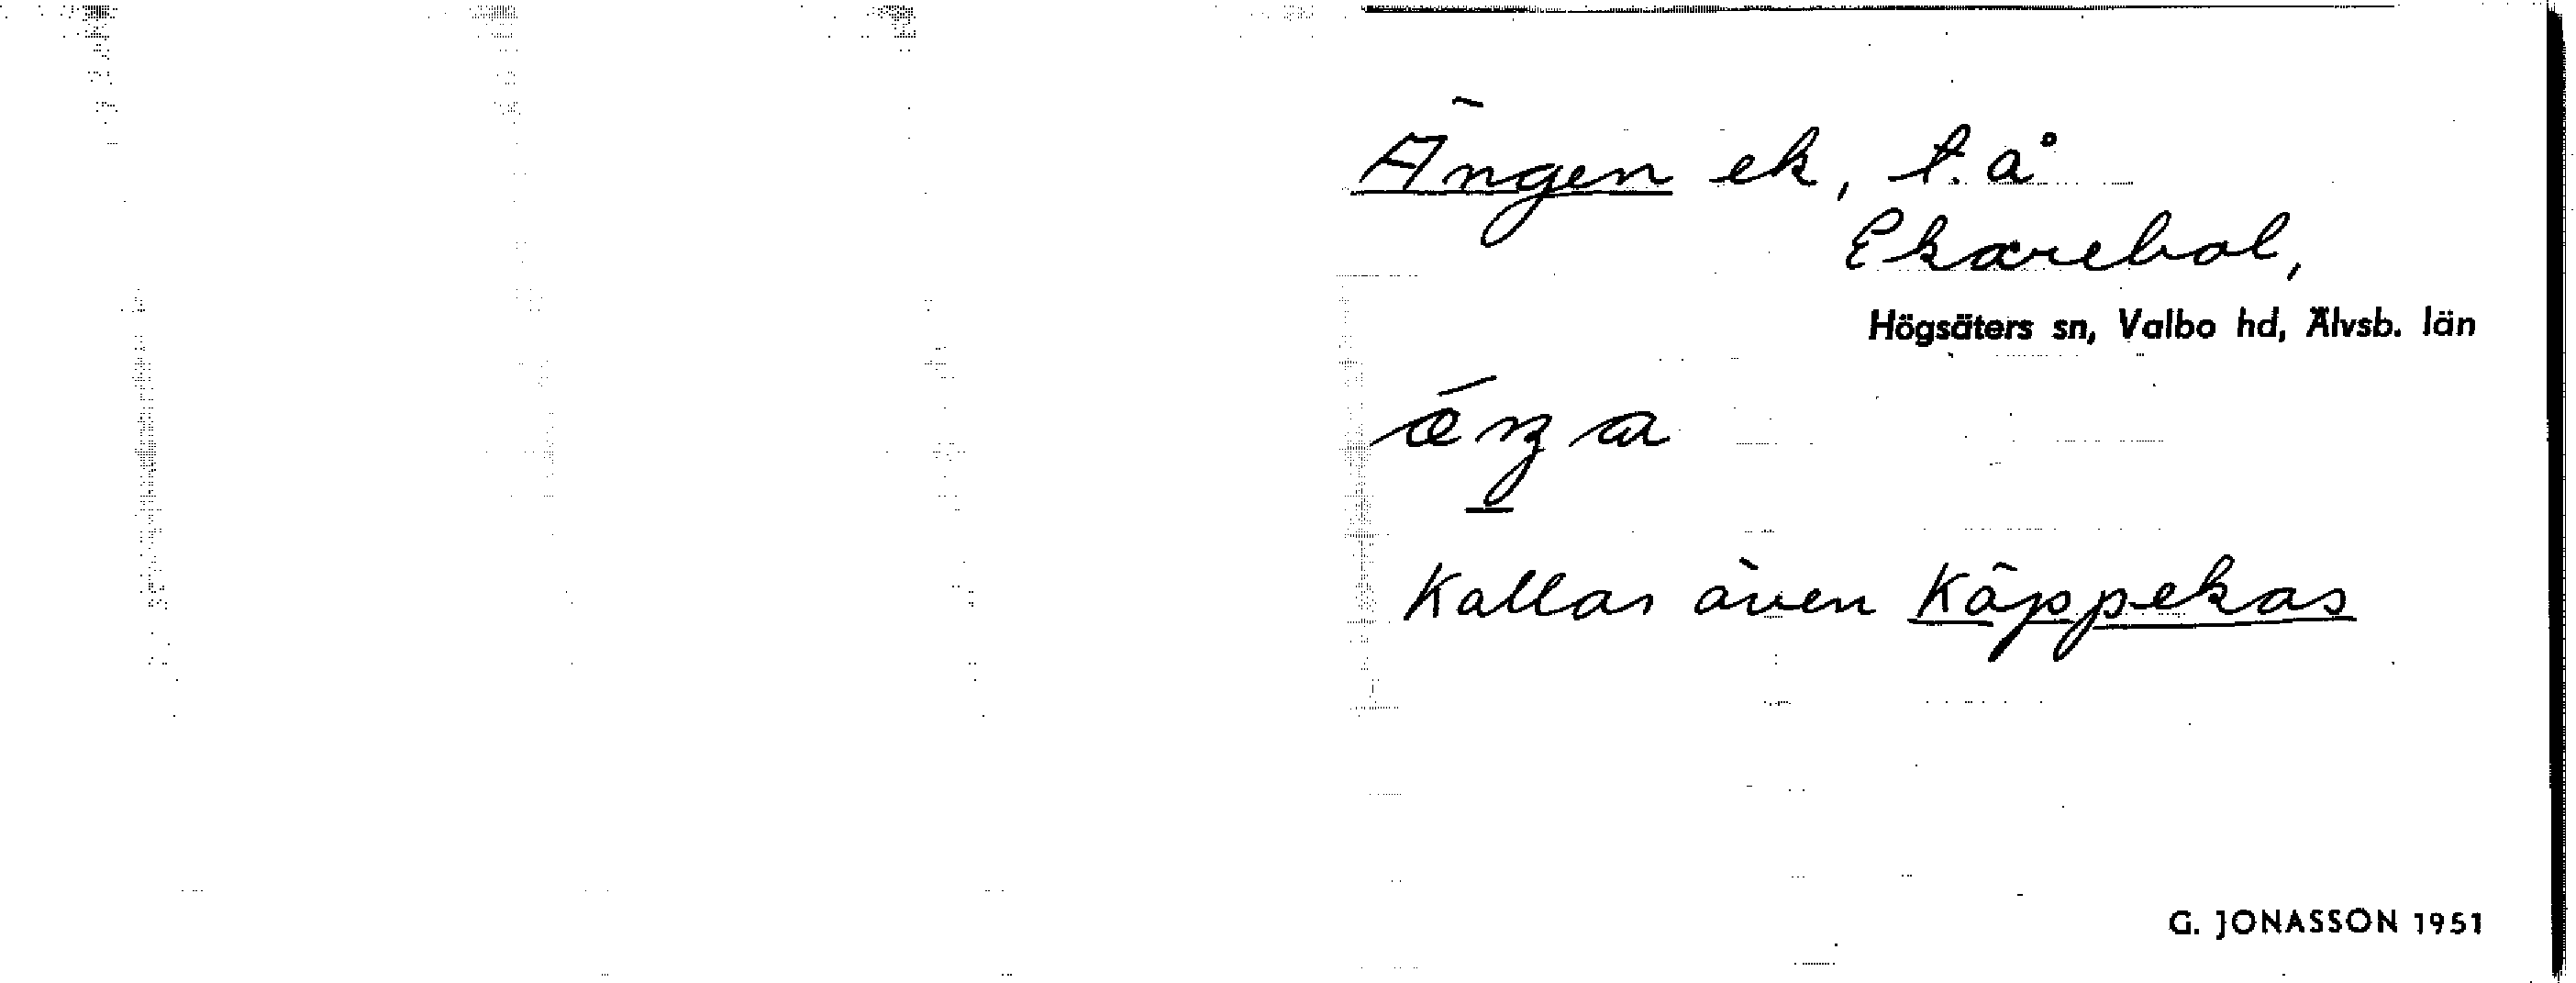 Ängen ek, t. å
Ekarebol,
Högsäters sn, Valbo hd, Älvsb. län
Kallas även Käppekas
G. JONASSON 1951